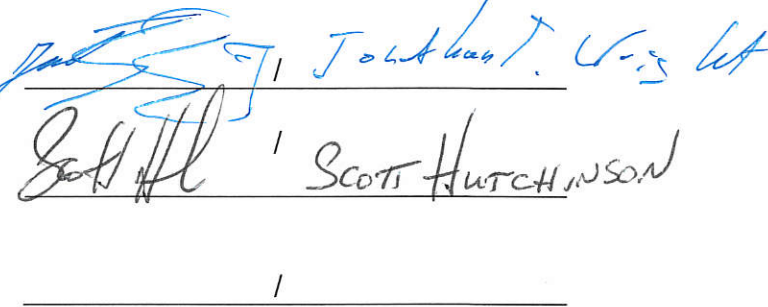 / Jonathan T. Wright
Scott H / SCOTT HUTCHINSON
/